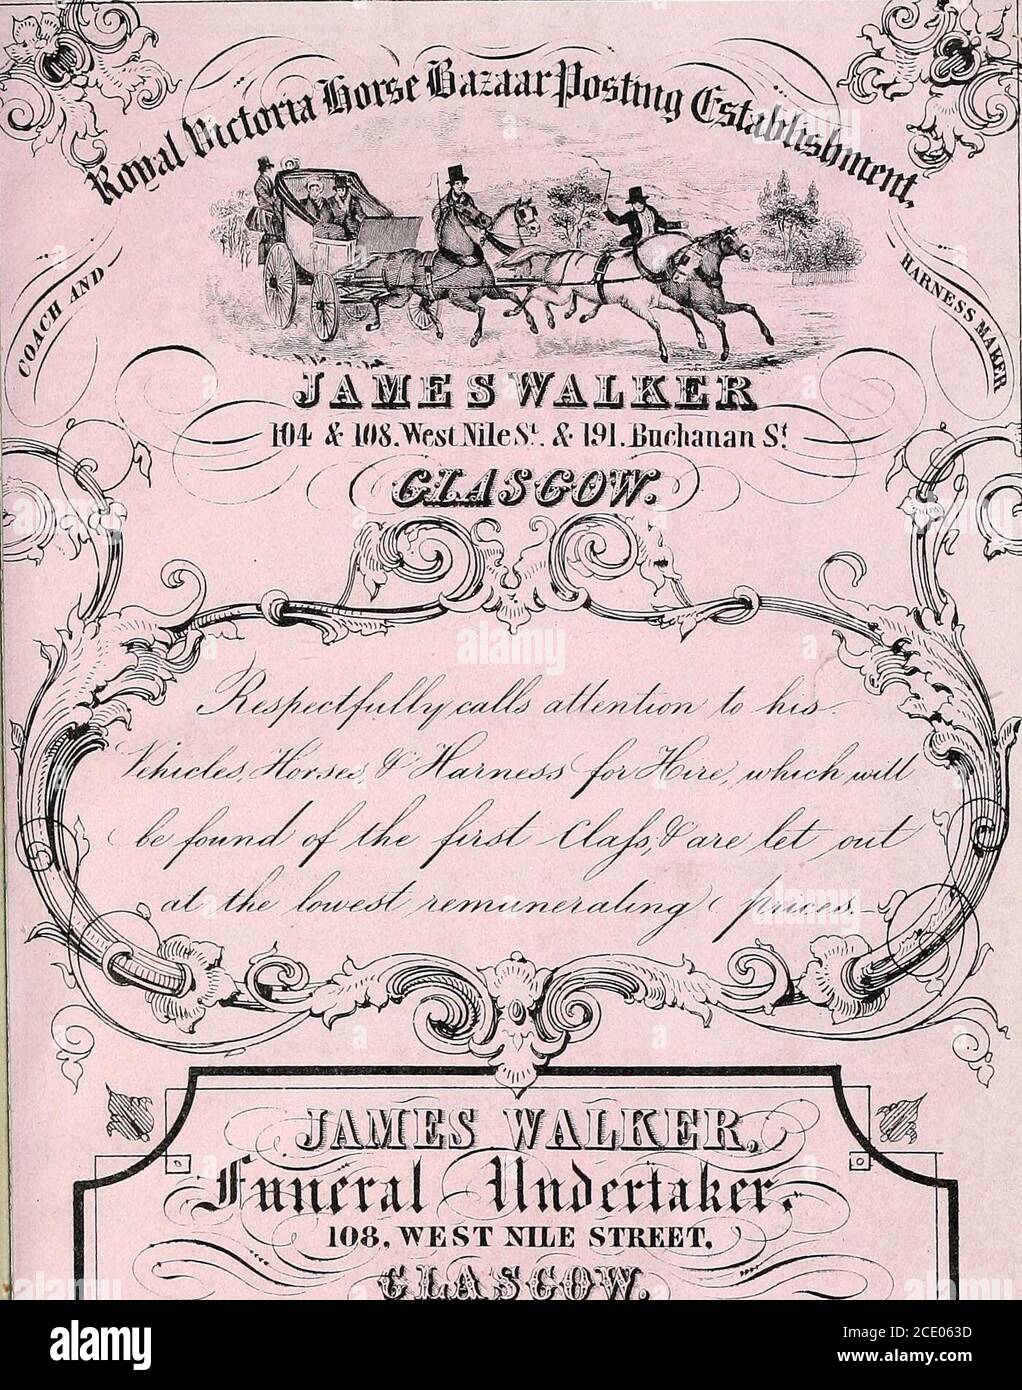 Royal Victoria Horse Bazaar Posting Establishment,
COACH AND
HARNESS MAKER
JAMES WALKER
104 & 108. West Nile St. & 191. Buchanan St
GLASGOW.
Respectfully calls attention to his
Vehicles, Horses, & Harness for Hire, which will
be found of the first Claſs, & are let out
at the lowest remunerating prices.
JAMES WALKER,
Funeral Undertaker,
108, WEST NILE STREET,
GLASGOW.
alamy
Image ID: 2CE063D
www.alamy.com